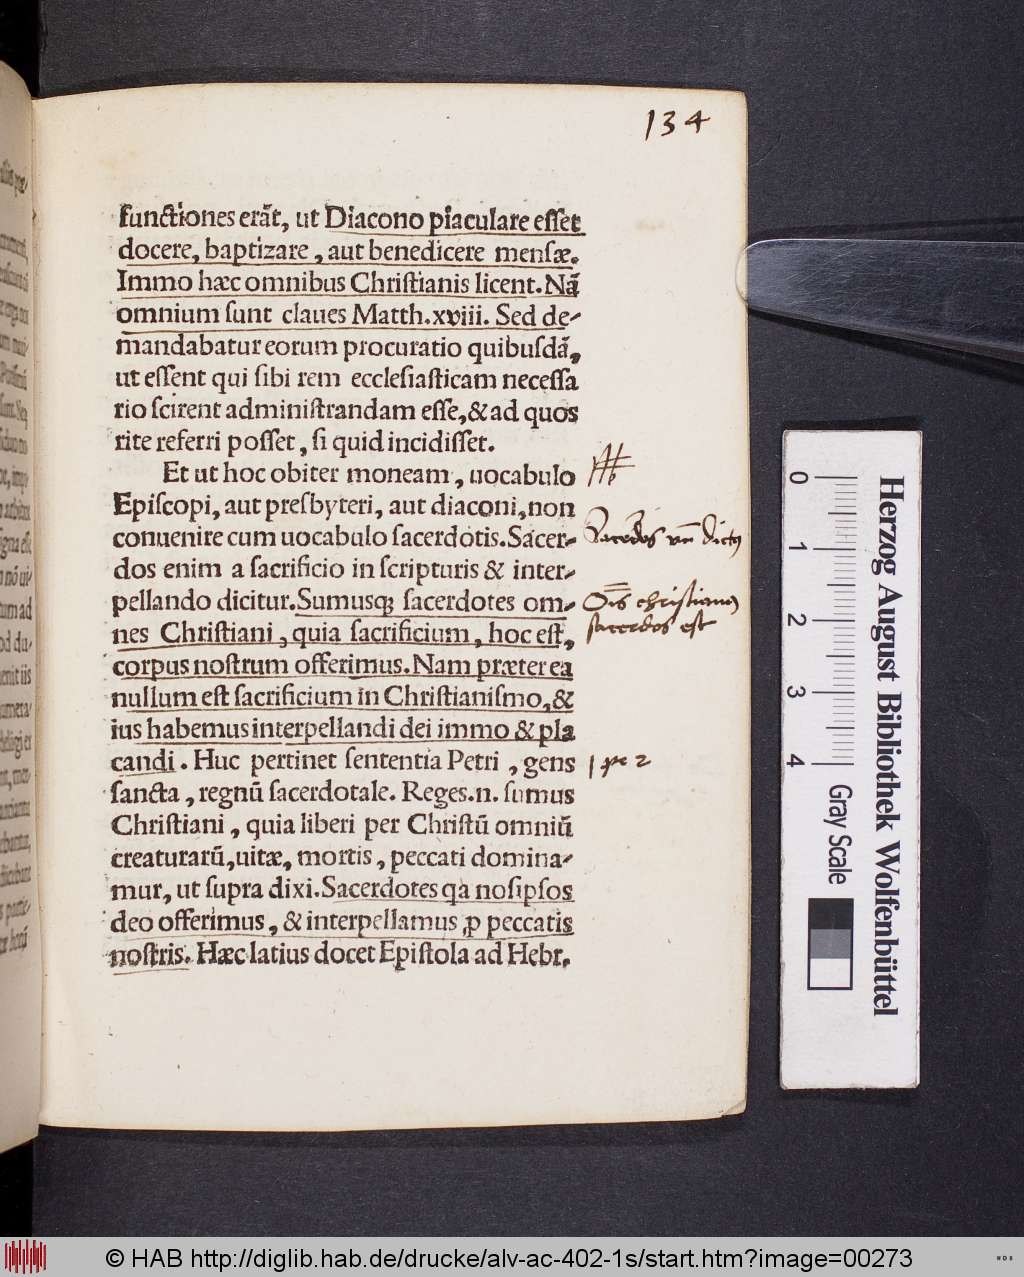 134
functiones erāt, ut Diacono piaculare esset
docere, baptizare, aut benedicere mensæ.
Immo hæc omnibus Christianis licent. Nā
omnium sunt claues Matth.xviii. Sed de-
mandabatur eorum procuratio quibusdā,
ut essent qui sibi rem ecclesiasticam necessa
rio scirent administrandam esse, & ad quos
rite referri posset, si quid incidisset.
Et ut hoc obiter moneam, uocabulo
Episcopi, aut presbyteri, aut diaconi, non
conuenire cum uocabulo sacerdotis. Sacer-
Sacerdos
dos enim a sacrificio in scripturis & inter-
pellando dicitur. Sumusq; sacerdotes om-
Oīs christianus
nes Christiani, quia sacrificium, hoc est,
sacerdos est
corpus nostrum offerimus. Nam præter ea
nullum est sacrificium in Christianismo, &
ius habemus interpellandi dei immo & pla
candi. Huc pertinet sententia Petri, gens
1 pe 2
sancta, regnū sacerdotale. Reges.n. sumus
Christiani, quia liberi per Christū omniū
creaturarū, uitæ, mortis, peccati domina-
mur, ut supra dixi. Sacerdotes qa nosipsos
deo offerimus, & interpellamus ꝓ peccatis
nostris. Hæc latius docet Epistola ad Hebr.
Herzog August Bibliothek Wolfenbüttel
0 1 2 3 4
Gray Scale
© HAB http://diglib.hab.de/drucke/alv-ac-402-1s/start.htm?image=00273